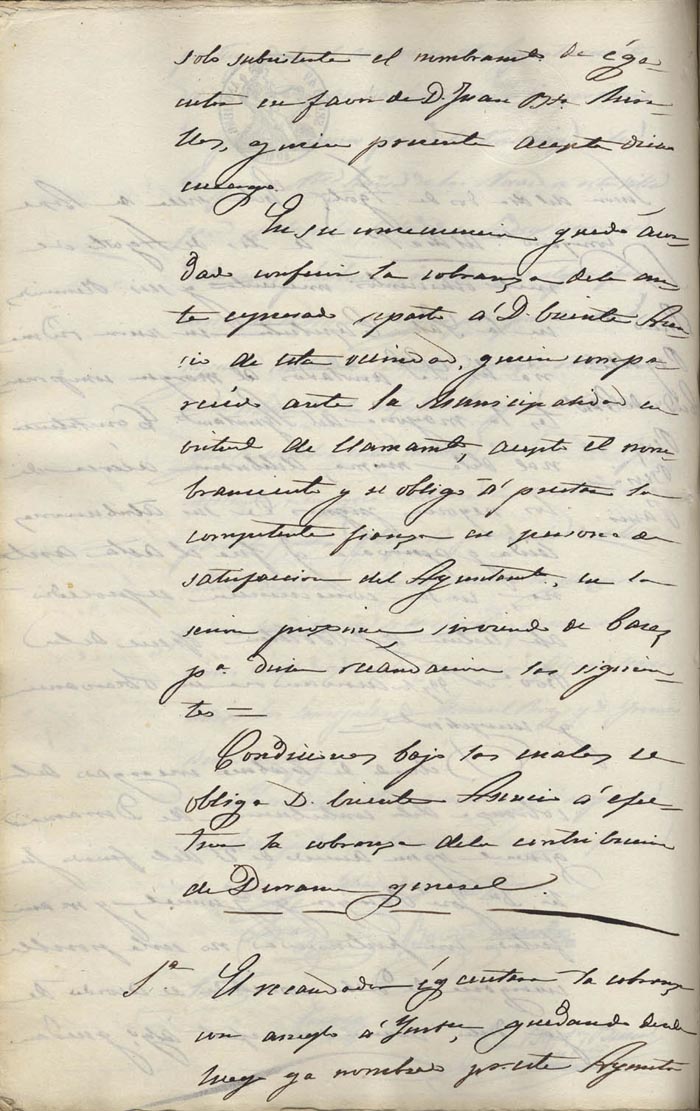 solo subsistente el nombramto de ége-
cutor en favor de D. Juan Bta
lles, quien presente acepto dicho
encargo.
En su consecuencia quedó ácor-
dado conferir la cobranza dela an-
te espresado reparto á D. Vicente Asen-
sio de esta vecindad, quien compa-
reciendo ante la Municipalidad en
virtud de llamamto, acepto el nom-
bramiento y se obligó á prestar la
competente fianza en persona de
satisfaccion del Ayuntamto, en la
sesion proxima sirviendo de bases
pa dicha recaudacion las siguien-
tes =
Condiciones bajo las cuales se
obliga D. Vicente Asensio á efec-
tuar la cobranza dela contribucion
de Derrama general
1a El recaudador égecutara la cobranza
con arreglo á Ynstn, quedando desde
luego ya nombrado por este Ayuntato